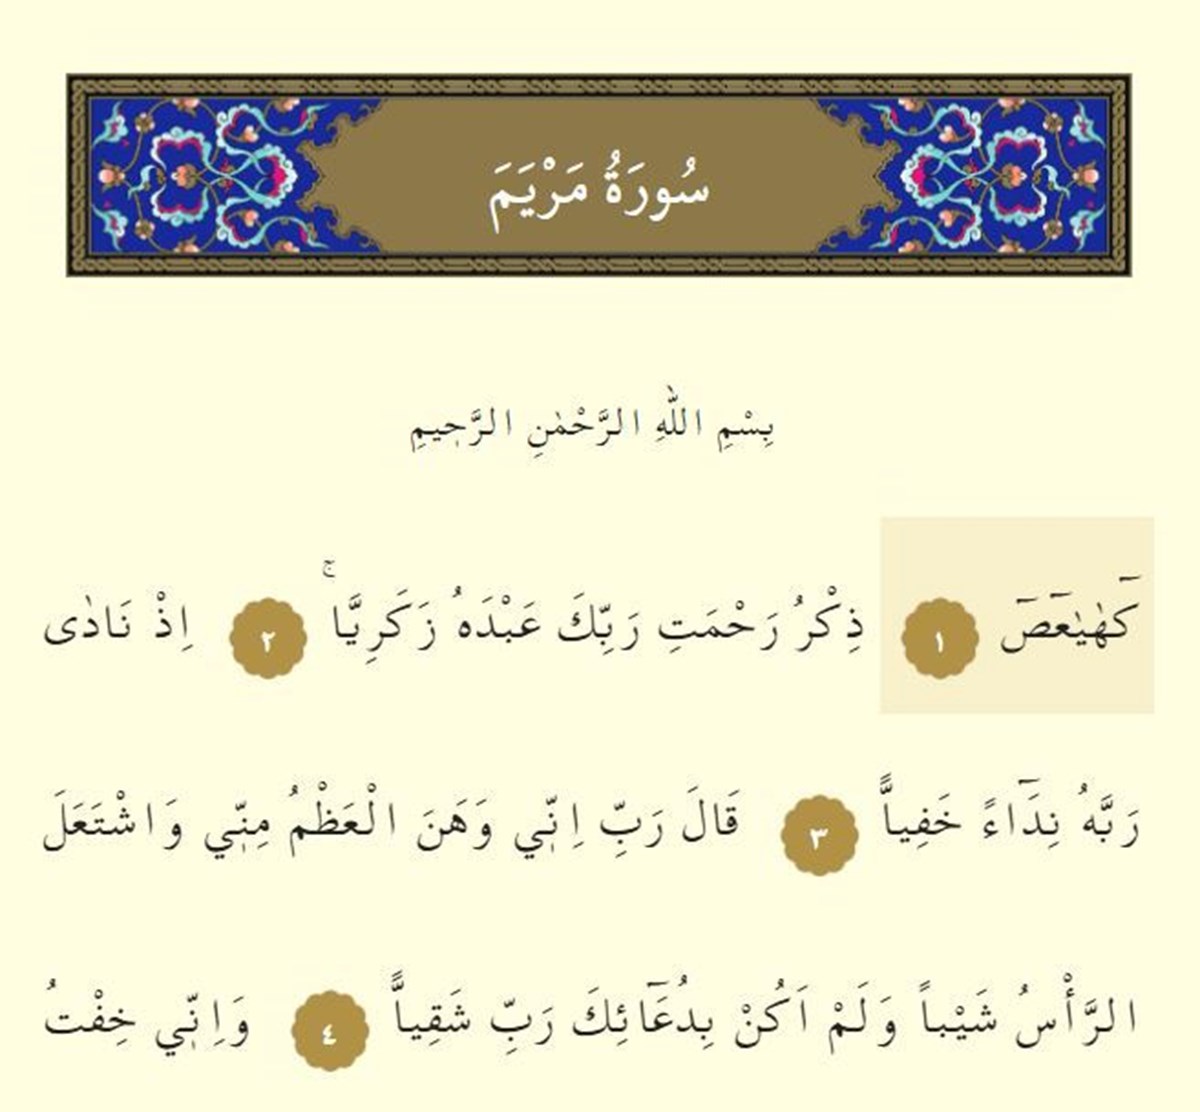 سُورَةُ مَرْيَمَ
بِسْمِ اللّٰهِ الرَّحْمٰنِ الرَّح۪يمِ
كٓهٰيٰعٓصٓ ١ ذِكْرُ رَحْمَتِ رَبِّكَ عَبْدَهُ زَكَرِيَّاۚ ٢ اِذْ نَادٰى
رَبَّهُ نِدَٓاءً خَفِياًّ ٣ قَالَ رَبِّ اِنّ۪ي وَهَنَ الْعَظْمُ مِنّ۪ي وَاشْتَعَلَ
الرَّأْسُ شَيْباً وَلَمْ اَكُنْ بِدُعَٓائِكَ رَبِّ شَقِياًّ ٤ وَاِنّ۪ي خِفْتُ